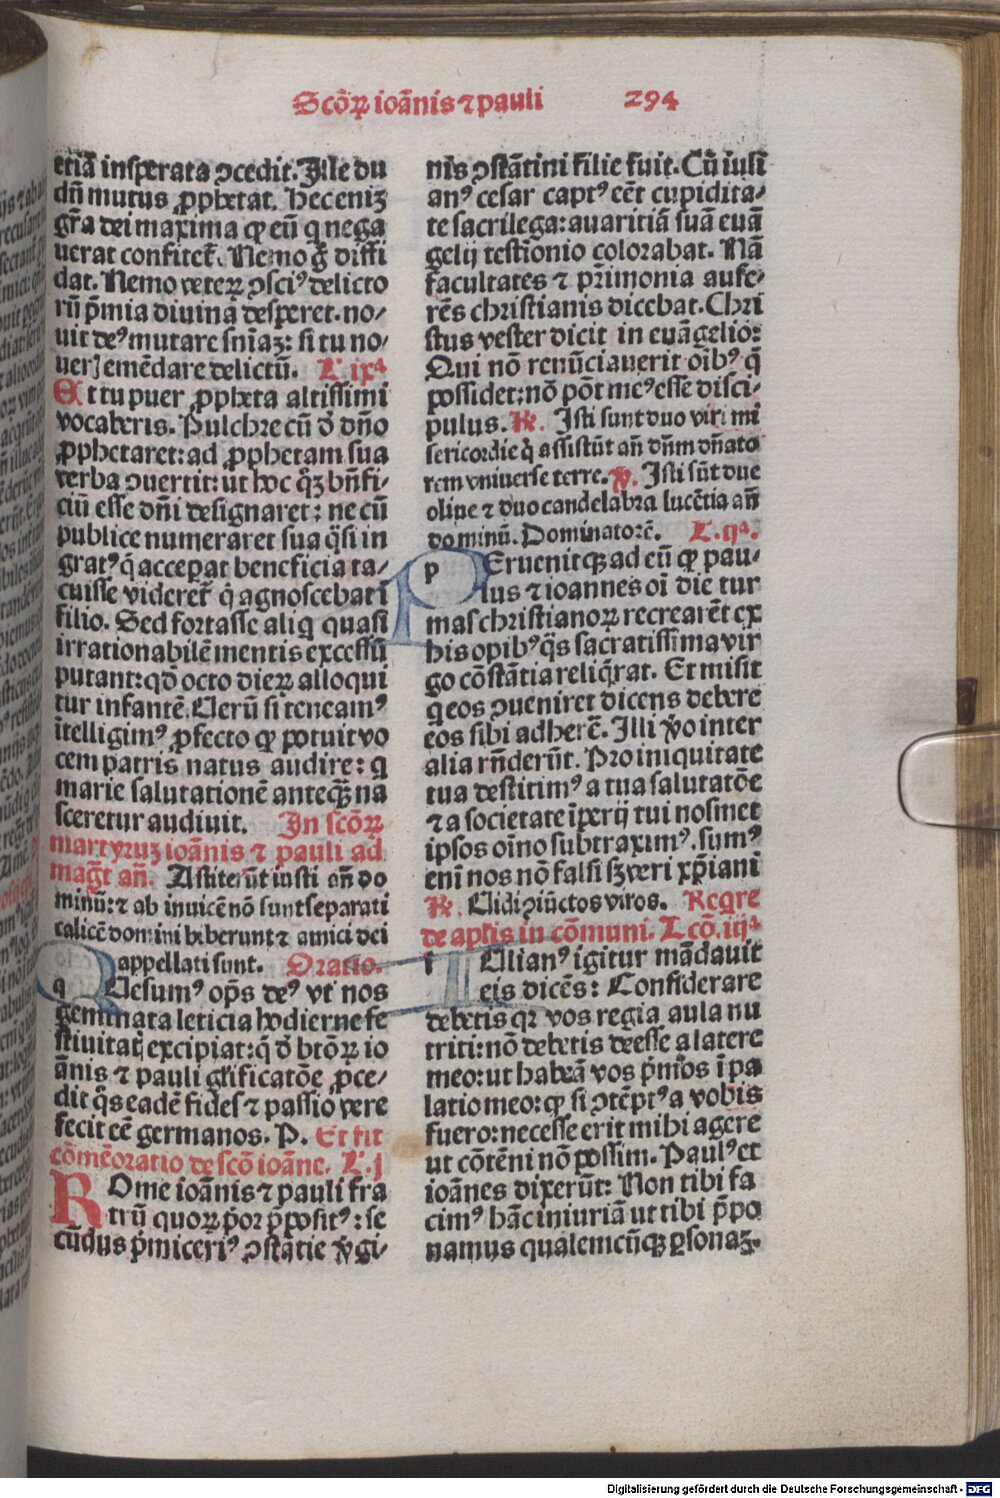 Scōꝝ ioānis ⁊ pauli 294
etiā insperata ꝯcedit. Ille du
dū mutus ꝓphetat. hec eniꝫ
gr̄a dei maxima ꝙ eū q nega
uerat confitet᷑. Nemo g̊ diffi
dat. Nemo veteꝝ ꝯsciꝰ delicto
rū p̄mia diuina desperet. no⸗
uit deꝰ mutare sn̄iaꝫ: si tu no⸗
ueris emēdare delictū. L. ixᵃ
Et tu puer ꝓpheta altissimi
vocaberis. Pulchre cū ď dn̄o
ꝓphetaret: ad ꝓphetam sua
verba ꝯuertit: ut hoc q̊ꝫ bn̄fi⸗
ciū esse dn̄i designaret: ne cū
publice numeraret sua q̊si in
gratꝰ q̄ acceperat beneficia ta⸗
cuisse videret᷑ q̄ agnoscebat ī
filio. Sed fortasse aliq quasi
irrationabilē mentis excessū
putant: qď octo dieꝝ alloqui
tur infantē. Verū si teneamꝰ
ītelligimꝰ ꝓfecto ꝙ potuit vo
cem patris natus audire: q
marie salutationē anteq̄ꝫ na
sceretur audiuit. In scōꝝ
martyruꝫ ioānis ⁊ pauli ad
mag̃t añ. Astiterūt iusti añ do
minū: ⁊ ab inuicē nō sunt separati
calicē domini biberunt ⁊ amici dei
appellati sunt. Oratio.
q Uesumꝰ op̄s deꝰ vt nos
geminata leticia hodierne fe
stiuitatis excipiat: q̄ ď btōꝝ io
ānis ⁊ pauli gl̃ificatōe ꝓce⸗
dit q̊s eadē fides ⁊ passio vere
fecit eē germanos. P. Et fit
cōmēoratio de scō ioāne. L. j
ROme ioānis ⁊ pauli fra
trū quoꝝ p̓or p̄positꝰ: se
cūdus p̓miceriꝰ ꝯstātie v̓gi⸗
nis ꝯstātini filie fuit. Cū iuli
anꝰ cesar captꝰ eēt cupidita⸗
te sacrilega: auaritiā suā euā
gelij testīonio colorabat. Nā
facultates ⁊ pr̄imonia aufe⸗
rēs christianis dicebat. Chri
stus vester dicit in euāgelio:
Qui nō renūciauerit oībꝰ q̄
possidet: nō pōt meꝰ esse disci⸗
pulus. ℟. Isti sunt duo viri mi
sericordie q̓ assistūt añ dn̄m dn̄ato
rem vniuerse terre. ℣. Isti sūt due
oliue ⁊ duo candelabra lucētia añ
do minū. Dominatorē. L. ijᵃ.
p Eruenit qꝫ ad eū ꝙ pau⸗
lus ⁊ ioannes oī die tur
mas christianoꝝ recrearēt ex
his opibꝰ q̊s sacratissīma vir
go cōstātia reliq̓rat. Et misit
q eos ꝯueniret dicens debere
eos sibi adherē. Illi v̊o inter
alia rn̄derūt. Pro iniquitate
tua destitimꝰ a tua salutatōe
⁊ a societate īperij tui nosmet
ipsos oīno subtraximꝰ. sumꝰ
enī nos nō falsi sꝫ veri xp̄iani
℟. Uidi ꝯiūctos viros. Reqͥre
de apl̃is in cōmuni. Lcō. iijᵃ
i Ulianꝰ igitur mādauit
eis dicēs: Considerare
debetis qꝛ vos regia aula nu
triti: nō debetis deesse a latere
meo: ut habeā vos p̓mos ī pa
latio meo: ꝙ si ꝯtēptꝰ a vobis
fuero: necesse erit mihi agere
ut cōtēni nō possim. Paulꝰ et
ioānes dixerūt: Non tibi fa
cimꝰ hāc iniuriā ut tibi p̄po
namus qualemcūqꝫ ꝑsonaꝫ.
Digitalisierung gefördert durch die Deutsche Forschungsgemeinschaft - DFG